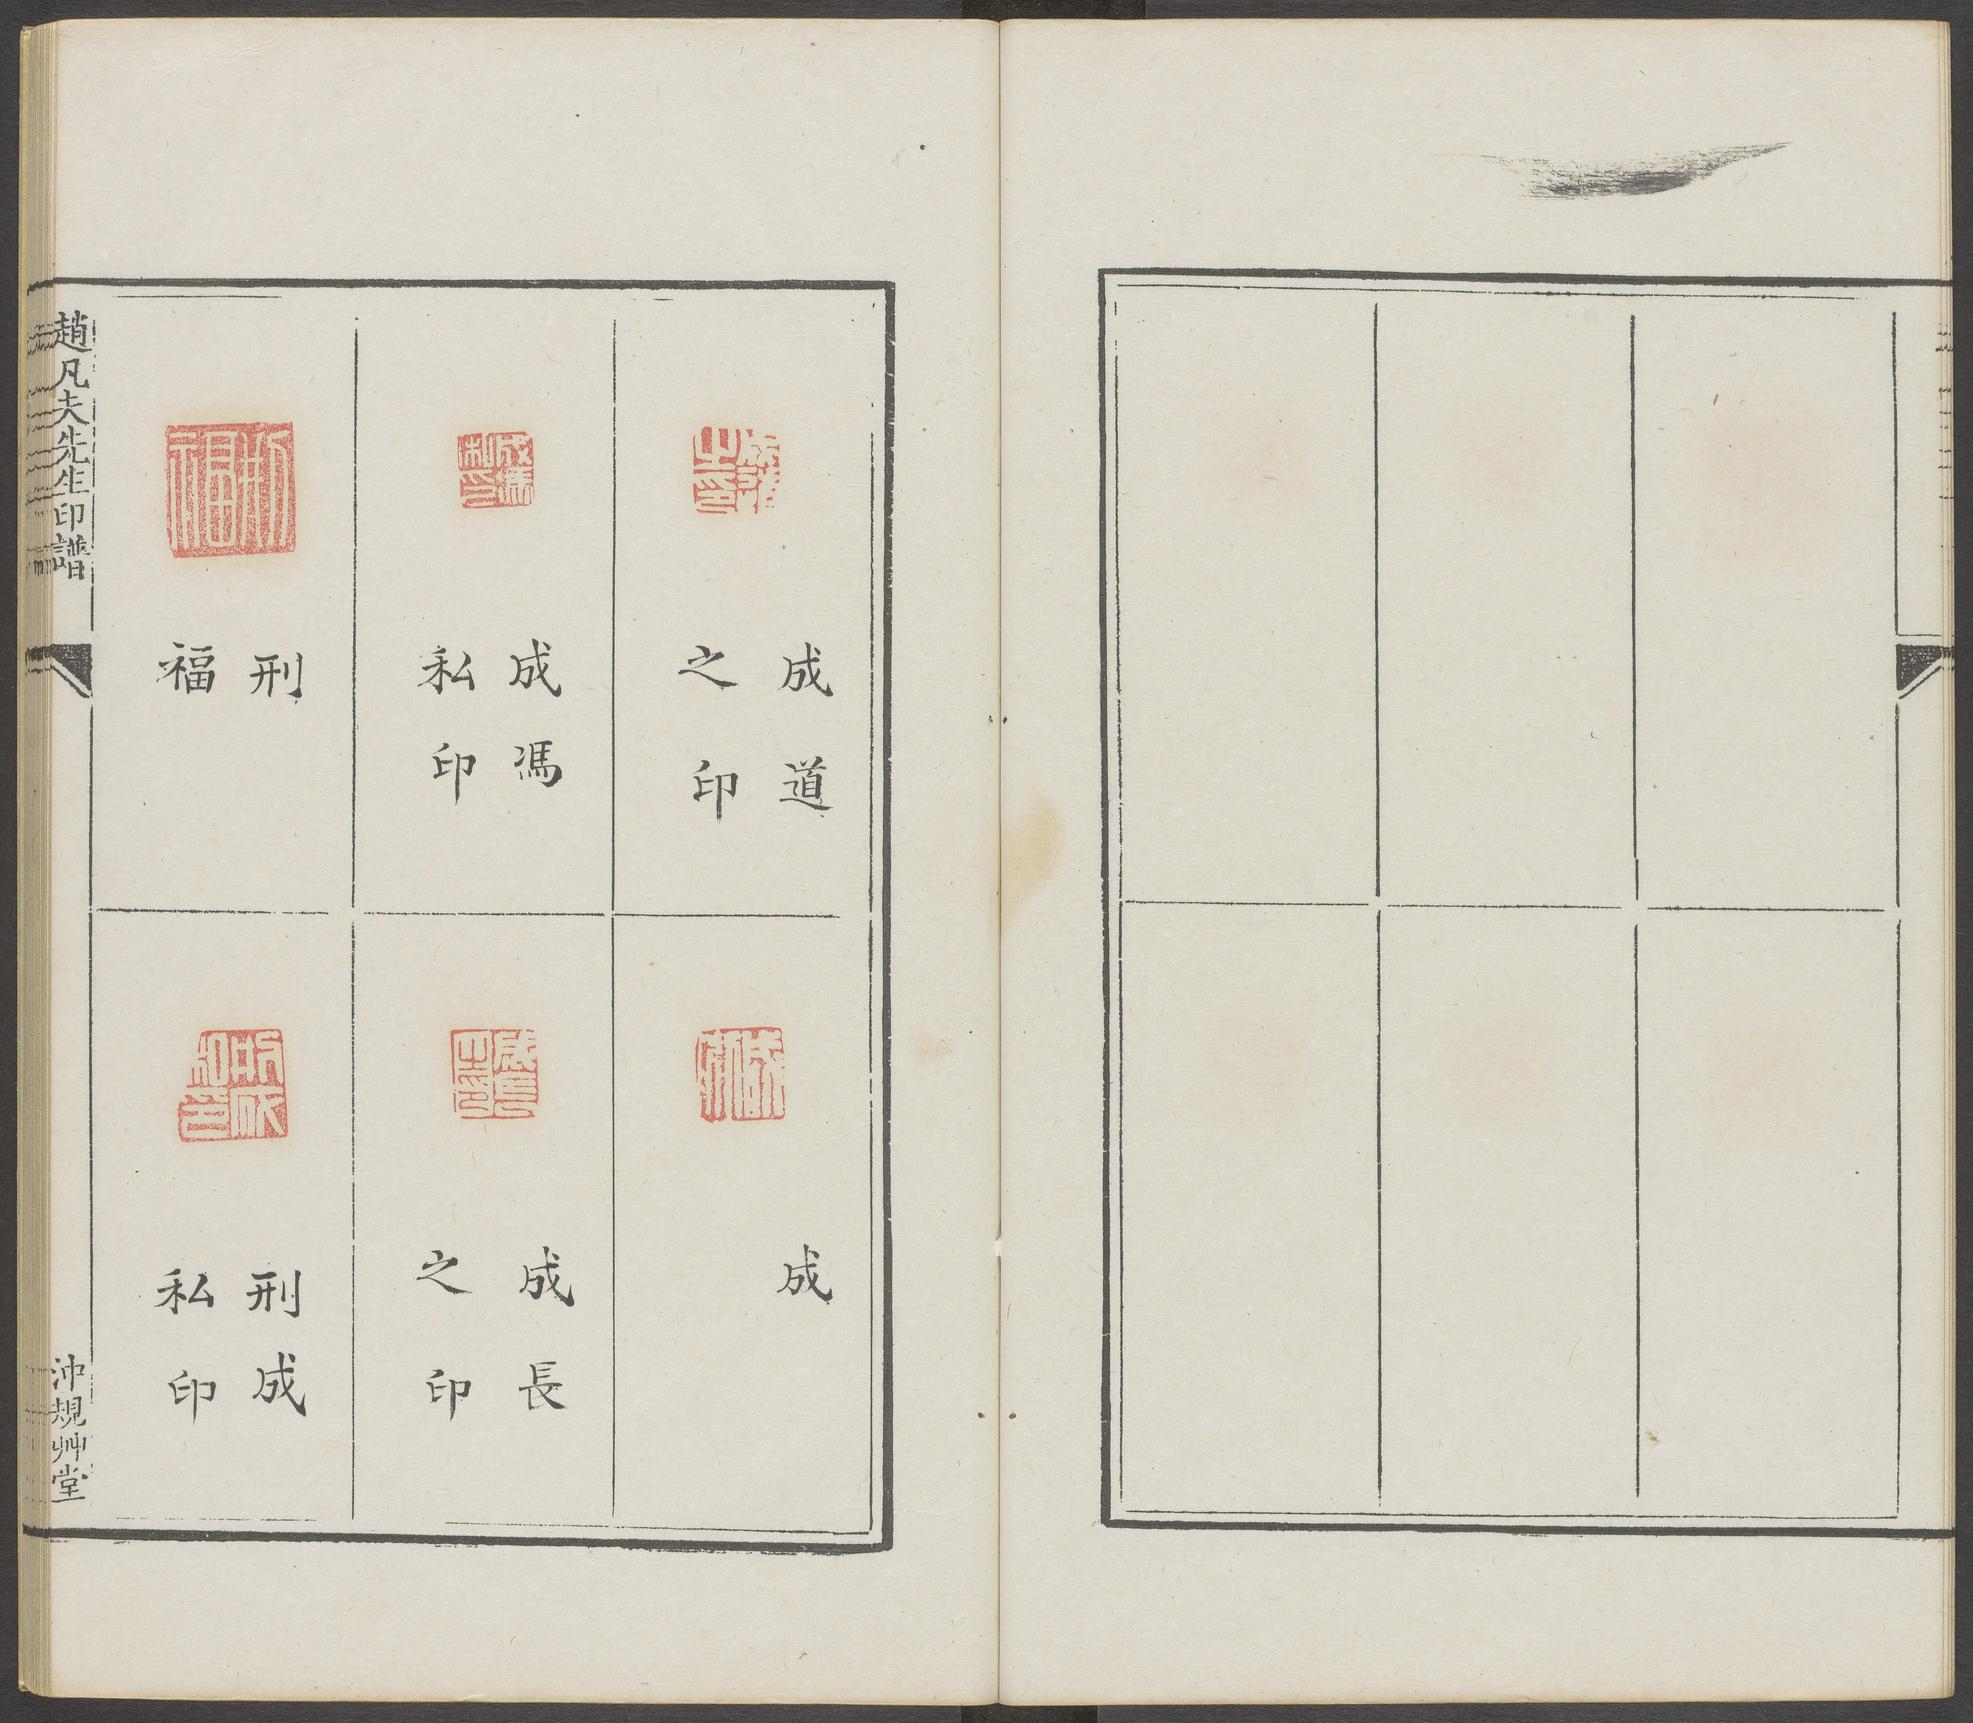 成道
之印
成
成馮
私印
成長
之印
刑
福
刑成
私印
趙凡夫先生印譜
沖規艸堂